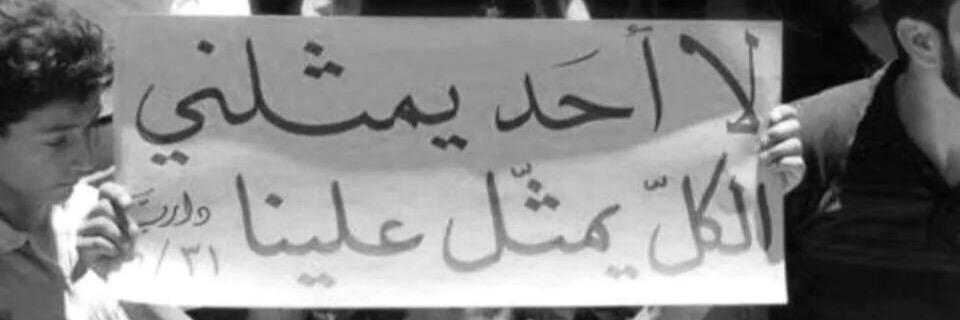 لا أحَد يمثلني
الكلّ يمثّل علينا
٣١/